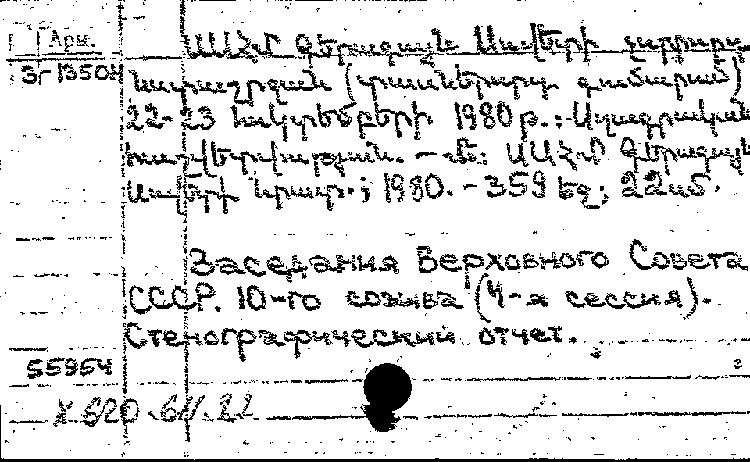 Арм.
3г 13504
ՍՍՀՄ Գերագույն Սովետի չորրորդ
նստաշրջան (տասներորդ գումարում)
22-23 հոկտեմբերի 1980թ.: Սղագրական
հաշվետվություն. – Մ.: ՍՍՀՄ Գերագույն
Սովետի հրատ.; 1980. – 359 եջ; 22սմ.
Заседания Верховного Совета
СССР. 10-го созыва (4-я сессия).
Стенографический отчет.
55954
X 620.611.22